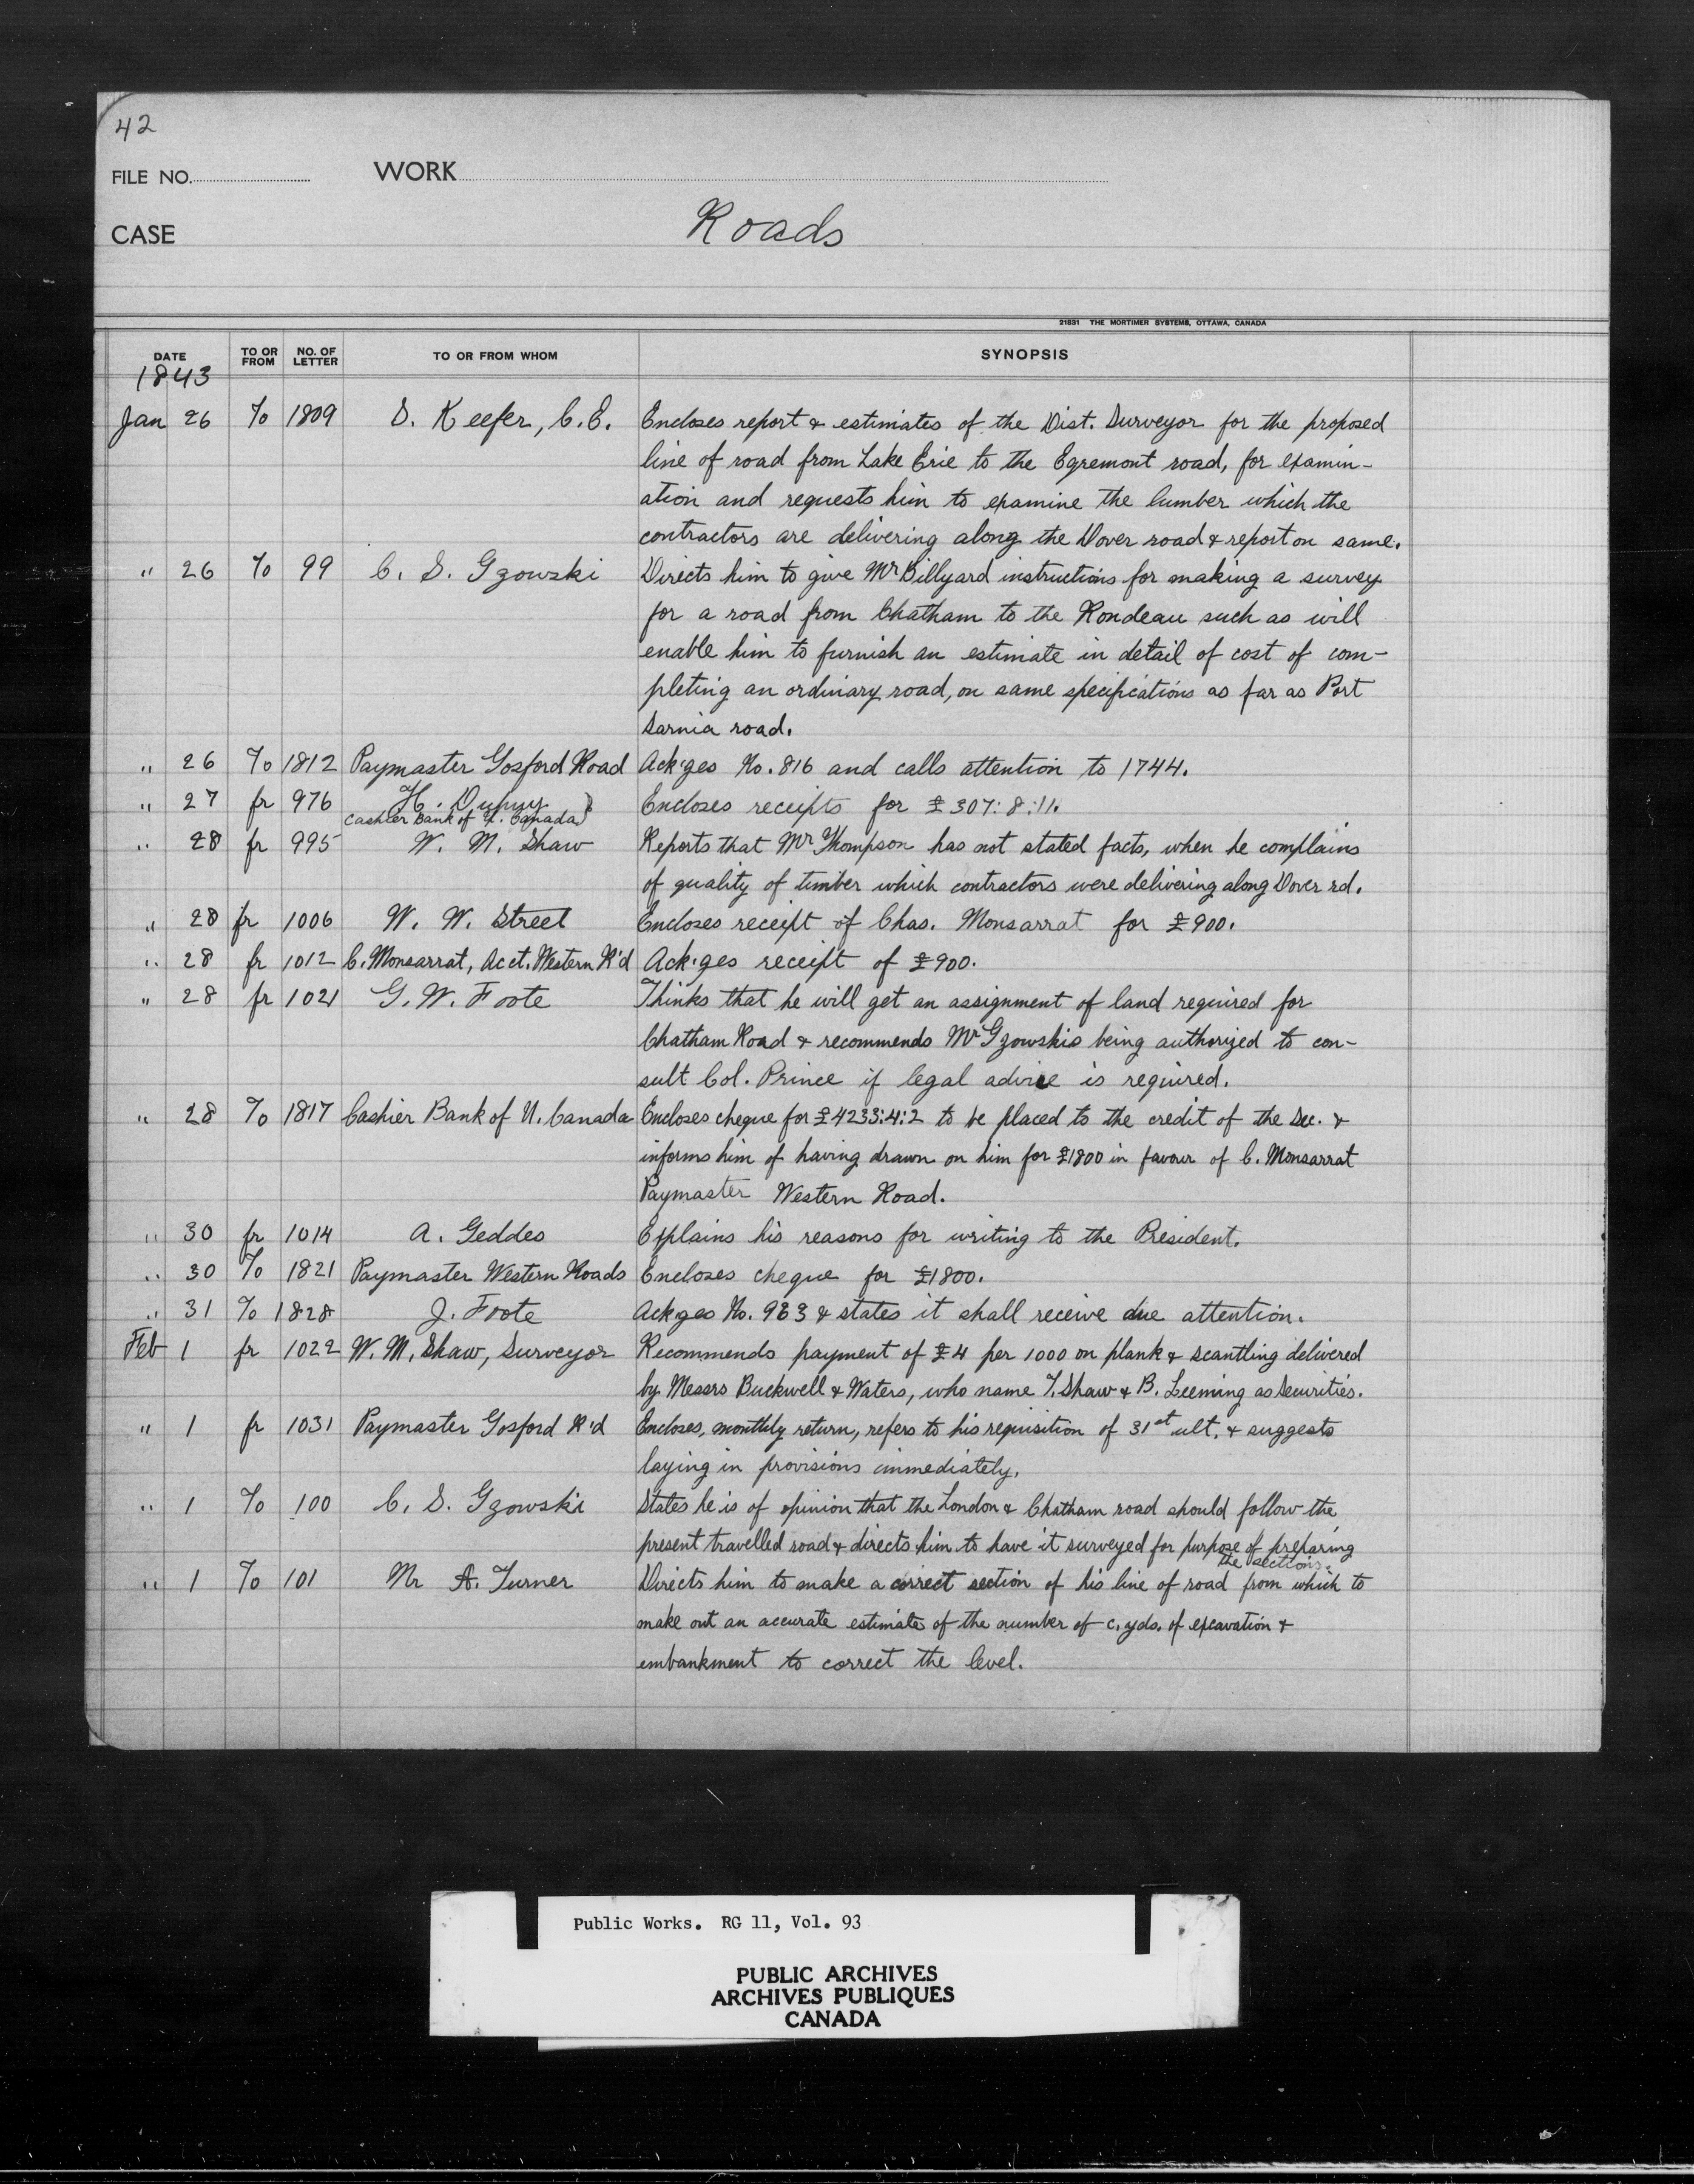 42
FILE NO. WORK
CASE Roads
21831 THE MORTIMER SYSTEMS, OTTAWA, CANADA
DATE TO OR FROM NO. OF LETTER TO OR FROM WHOM SYNOPSIS
1843
Jan 26 To 1809 S. Keefer, C.E. Encloses report & estimates of the Dist. Surveyor for the proposed
line of road from Lake Erie to the Egremont road, for examin-
ation and requests him to examine the lumber which the
contractors are delivering along the Dover road & report on same.
" 26 To 99 C. S. Gzowski Directs him to give Mr Billyard instructions for making a survey
for a road from Chatham to the Rondeau such as will
enable him to furnish an estimate in detail of cost of com-
pleting an ordinary road, on same specifications as far as Port
Sarnia road.
" 26 To 1812 Paymaster Gosford Road Ack'ges No. 816 and calls attention to 1744.
" 27 fr 976 H. Dupuy } Encloses receipts for £307:8:11.
Cashier Bank of U. Canada }
" 28 fr 995 W. M. Shaw Reports that Mr Thompson has not stated facts, when he complains
of quality of timber which contractors were delivering along Dover rd.
" 28 fr 1006 W. W. Street Encloses receipt of Chas. Monsarrat for £900.
" 28 fr 1012 C. Monsarrat, Acct. Western R'd Ack'ges receipt of £900.
" 28 fr 1021 G. W. Foote Thinks that he will get an assignment of land required for
Chatham Road & recommends Mr Gzowskis being authorized to con-
sult Col. Prince if legal advice is required.
" 28 To 1817 Cashier Bank of U. Canada Encloses cheque for £4233:4:2 to be placed to the credit of the Sec. &
informs him of having drawn on him for £1800 in favour of C. Monsarrat
Paymaster Western Road.
" 30 fr 1014 A. Geddes Explains his reasons for writing to the President.
" 30 To 1821 Paymaster Western Roads Encloses cheque for £1800.
" 31 To 1828 J. Foote Ack'ges No. 963 & states it shall receive due attention.
Feb 1 fr 1022 W. M. Shaw, Surveyor Recommends payment of £4 per 1000 on plank & scantling delivered
by Messrs Buckwell & Waters, who name T. Shaw & B. Leeming as securities.
" 1 fr 1031 Paymaster Gosford R'd Encloses, monthly return, refers to his requisition of 31st ult. & suggests
laying in provisions immediately.
" 1 To 100 C. S. Gzowski States he is of opinion that the London & Chatham road should follow the
present travelled road & directs him to have it surveyed for purpose of preparing
the sections.
" 1 To 101 Mr A. Turner Directs him to make a correct section of his line of road from which to
make out an accurate estimate of the number of c. yds. of excavation &
embankment to correct the level.
Public Works. RG 11, Vol. 93
PUBLIC ARCHIVES
ARCHIVES PUBLIQUES
CANADA